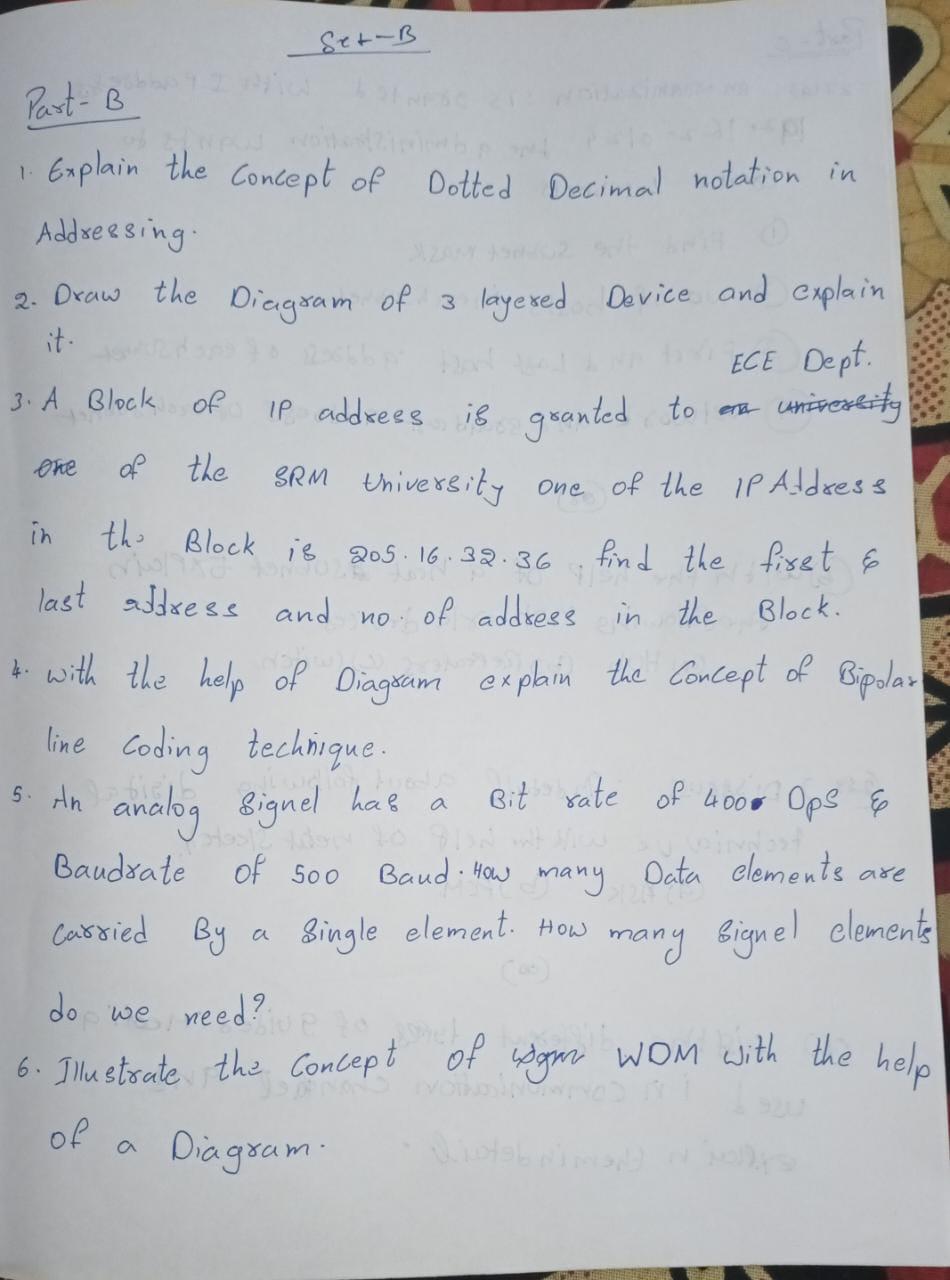 Set-B
Part-B
1. Explain the Concept of Dotted Decimal notation in
Addressing.
2. Draw the Diagram of 3 layered Device and explain
it.
ECE Dept.
3. A Block of IP address is granted to an university
one of the SRM University one of the IP Address
in the Block is 205.16.32.36. find the first &
last address and no. of address in the Block.
4. with the help of Diagram explain the Concept of Bipolar
line Coding technique.
5. An analog Signel has a Bit rate of 400 Ops &
Baudrate of 500 Baud. How many Data elements are
Carried By a Single element. How many Signel elements
do we need?
6. Illustrate the Concept of WDM with the help
of a Diagram.